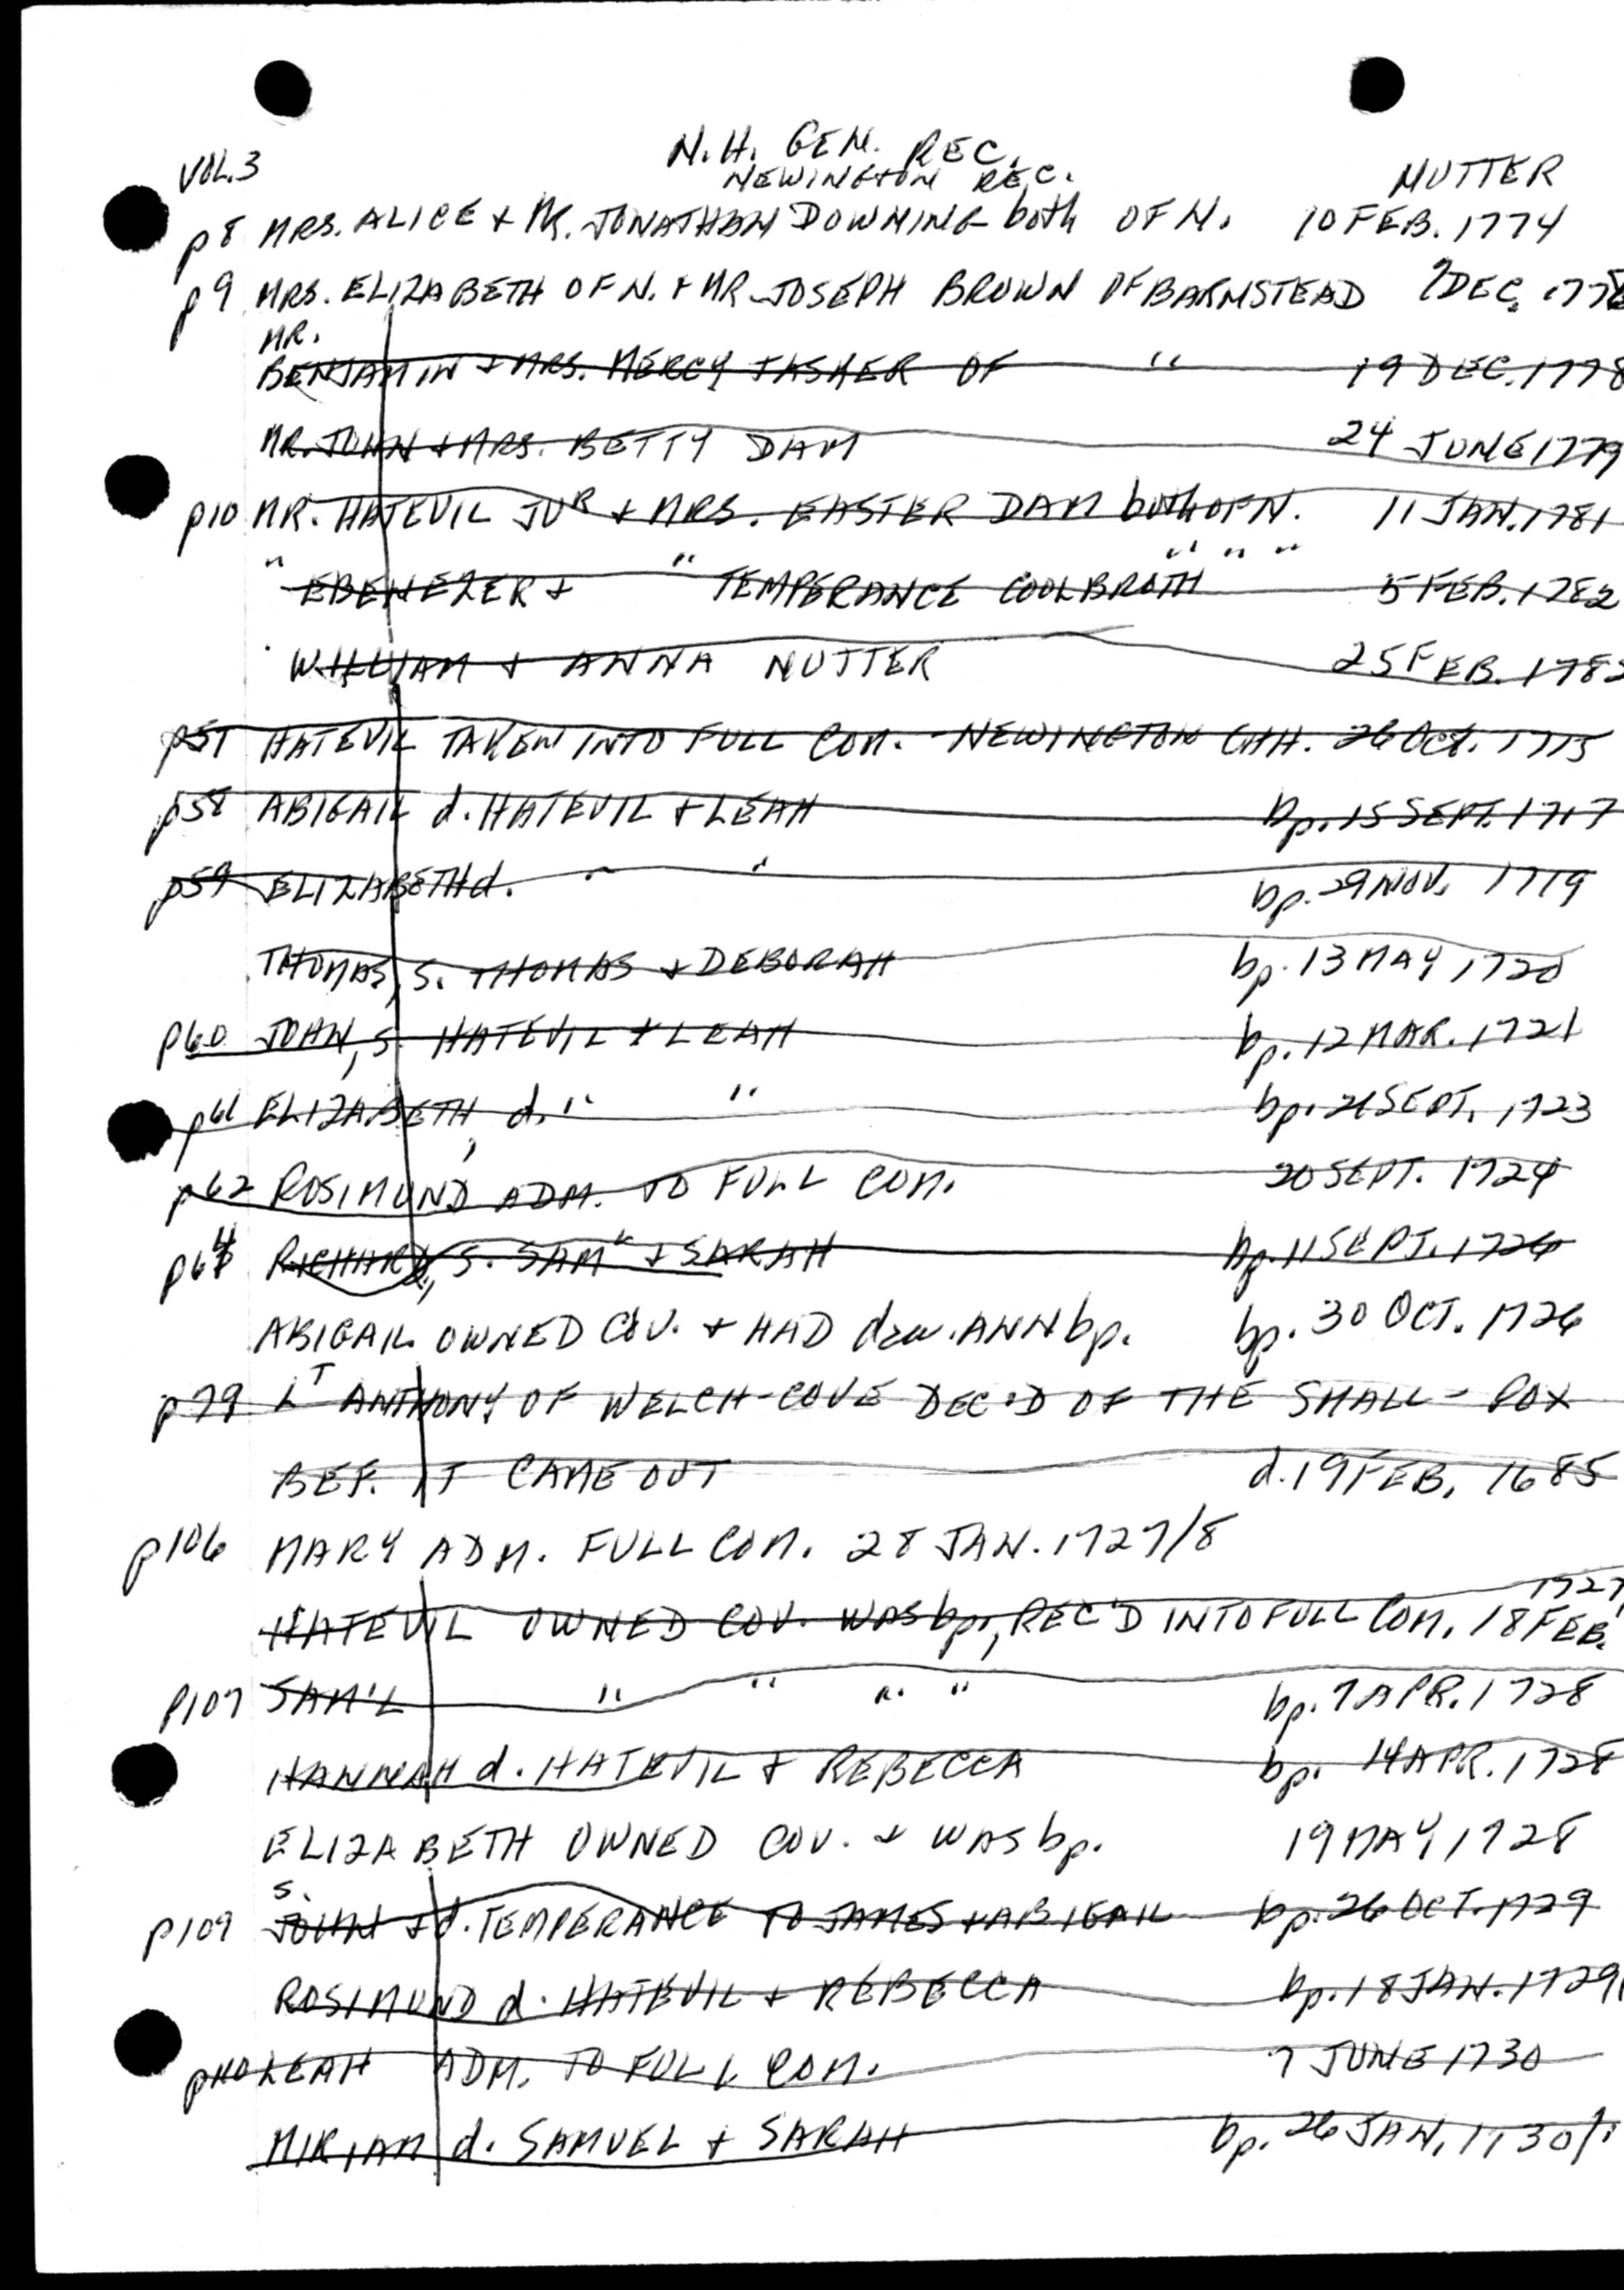 N.H. GEN. REC.
VOL.3 NEWINGTON REC. NUTTER
p8 MRS. ALICE + MR. JONATHAN DOWNING both OF N. 10 FEB. 1774
p9 MRS. ELIZABETH OF N. + MR JOSEPH BROWN OF BARNSTEAD DEC.
MR.
BENJAMIN + MRS. MERCY TASKER OF " 19 DEC. 1778
MR. JOHN + MRS. BETTY DAM 24 JUNE 1779
p10 MR. HATEVIL JUR + MRS. EASTER DAM both OF N. 11 JAN. 1781
" EBENEZER + " TEMPERANCE COOLBROTH " " " 5 FEB. 1782
WILLIAM + ANNA NUTTER 25 FEB.
p57 HATEVIL TAKEN INTO FULL COM. NEWINGTON CHH. 26 OCT. 1715
p58 ABIGAIL d. HATEVIL + LEAH bp. 15 SEPT. 1717
p59 ELIZABETH d. " " bp. 29 NOV. 1719
THOMAS, S. THOMAS + DEBORAH bp. 13 MAY 1720
p60 JOHN, S. HATEVIL + LEAH bp. 12 MAR. 1721
p61 ELIZABETH, d. " " bp. 21 SEPT. 1723
p62 ROSIMUND ADM. TO FULL COM. 20 SEPT. 1724
p64 RICHARD, S. SAMLL + SARAH bp. 11 SEPT. 1726
ABIGAIL OWNED COV. + HAD dau. ANN bp. bp. 30 OCT. 1726
p79 LT ANTHONY OF WELCH-COVE DEC'D OF THE SMALL-POX
BEF. IT CAME OUT d. 19 FEB. 1685
p106 MARY ADM. FULL COM. 28 JAN. 1727/8
HATEVIL OWNED COV. WAS bp., REC'D INTO FULL COM. 18 FEB. 1727
p107 SAM'L " " " " bp. 7 APR. 1728
HANNAH d. HATEVIL + REBECCA bp. 14 APR. 1728
ELIZABETH OWNED COV. + WAS bp. 19 MAY 1728
s.
p109 JOHN + d. TEMPERANCE TO JAMES + ABIGAIL bp. 26 OCT. 1729
ROSIMUND d. HATEVIL + REBECCA bp. 18 JAN. 1729/
p110 LEAH ADM. TO FULL COM. 7 JUNE 1730
MIRIAM d. SAMUEL + SARAH bp. 26 JAN. 1730/1